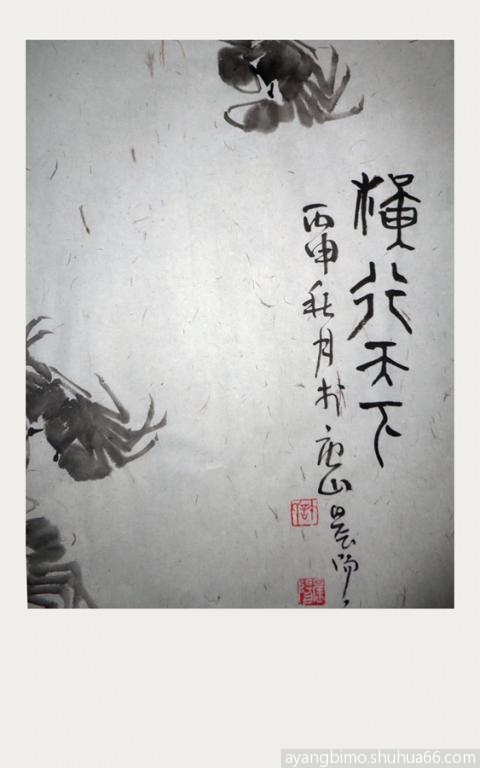 横行天下
丙申秋月於唐山晨阳
ayangbimo.shuhua66.com